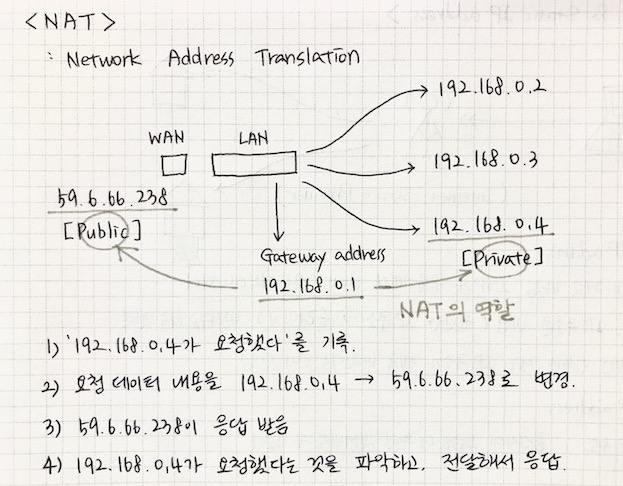 <NAT>
: Network Address Translation
192.168.0.2
WAN LAN
192.168.0.3
59.6.66.238
[Public]
192.168.0.4
[Private]
Gateway address
192.168.0.1
NAT의 역할
1) '192.168.0.4가 요청했다'를 기록.
2) 요청 데이터 내용을 192.168.0.4 → 59.6.66.238로 변경.
3) 59.6.66.238이 응답 받음
4) 192.168.0.4가 요청했다는 것을 파악하고, 전달해서 응답.